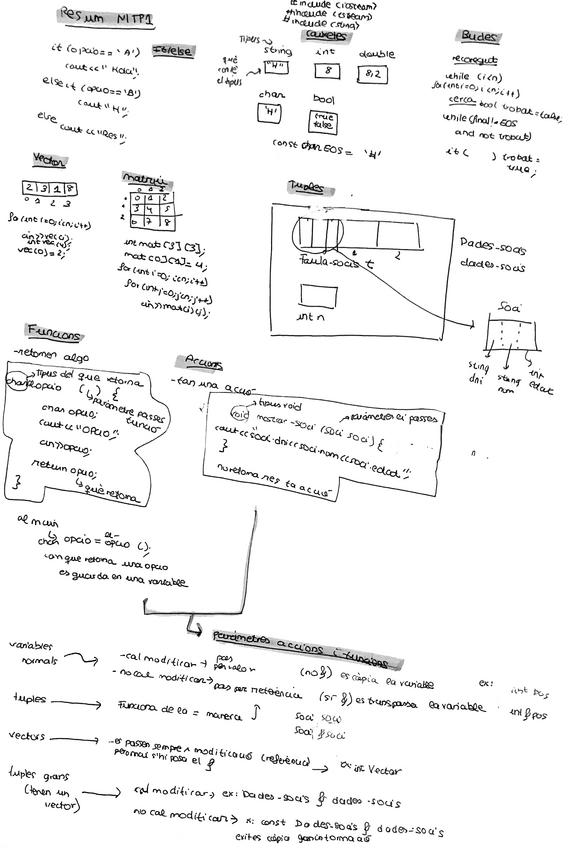 Resum MITP1
#include <iostream>
#include <sstream>
#include <string>
If/else
if (opcio== 'A')
cout<<" Hola";
else if (opcio=='B')
cout "H";
else
cout<<"Res";
caixetes
Tipus
string
int
double
què
conté
el tipus
"H"
8
8,2
char
bool
'H'
true
false
const char EOS = 'H'
Bucles
recorregut
while (i<n)
for(int i=0; i<n; i++)
cerca bool trobat=false;
while (final!=EOS
and not trobat)
if ( ) trobat =
true;
Vector
2 3 1 8
0 1 2 3
for(int i=0; i<n; i++)
cin>>vec(i);
int vec(4);
vec(0)=2;
matrius
0 1 2
0 1 2
3 4 5
6 7 8
int mat [3] [3];
mat [0][1] = 4;
for(int i=0; i<n; i++)
for(int j=0; j<n; j++)
cin>>mat(i)(j);
Tuples
Taula-socis t
int n
Dades-socis
dades-socis
Soci
string
dni
string
nom
int
edat
Funcions
-retornen algo
Tipus del que retorna
char opcio ( ) {
paràmetre passes
funció
char opcio;
cout<<"OPCIO";
cin>>opcio;
return opcio;
què retorna
}
al main
char opcio = opcio ();
com que retorna una opcio
es guarda en una variable
Accions
-fan una acció
tipus void
void mostrar-soci (soci soci) {
paràmetre i passes
cout<<soci.dni<<soci.nom<<soci.edad;
}
no retorna res fa acció
paràmetres accions i funcions
variables
normals
-cal modificar → pas
per valor
(no &) es còpia la variable
ex: int pos
- no cal modificar → pas per referència
(sí &) es transpassa la variable
int & pos
tuples
Funciona de la = manera
soci soci
soci & soci
vectors
-es passen sempre x modificació (referència)
però mai s'hi posa el &
ex: int Vector
tuples grans
(tenen un
vector)
cal modificar → ex: Dades-socis & dades-socis
no cal modificar → x: const Dades-socis & dades-socis
evites còpia